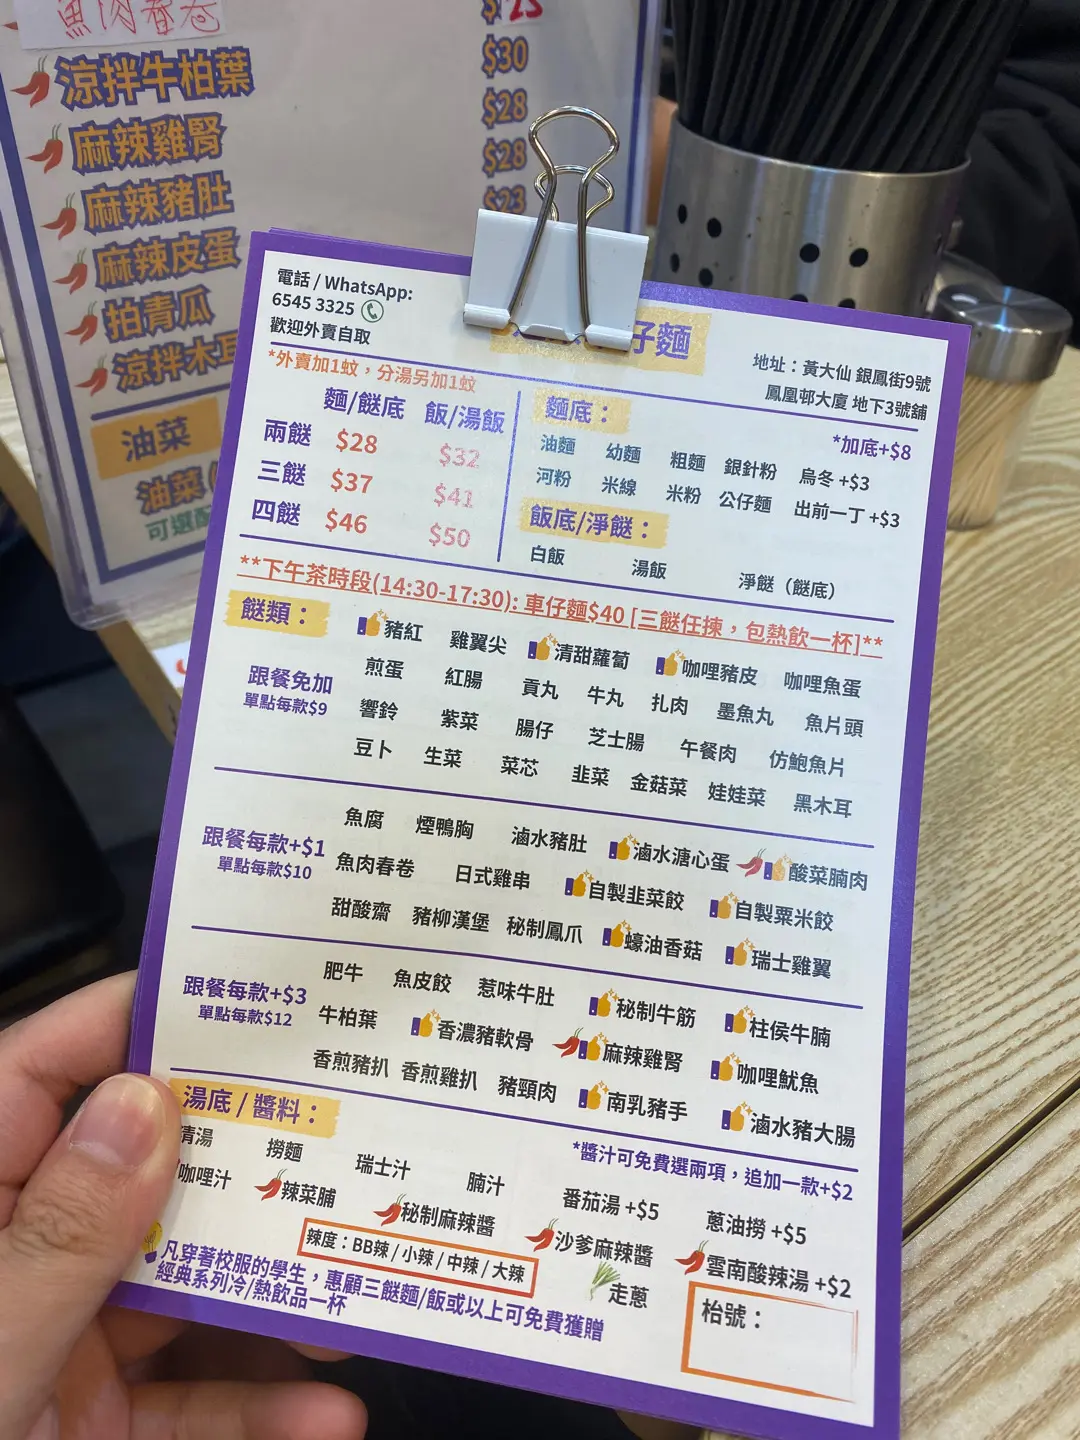 魚肉春卷
$25
涼拌牛柏葉 $30
麻辣雞腎 $28
麻辣豬肚 $28
麻辣皮蛋 $23
拍青瓜
涼拌木耳
油菜
油菜
電話 / WhatsApp:
6545 3325
歡迎外賣自取
仔麵
地址：黃大仙 銀鳳街9號
鳳凰邨大廈 地下3號舖
*外賣加1蚊，分湯另加1蚊
麵/餸底 飯/湯飯
兩餸 $28 $32
三餸 $37 $41
四餸 $46 $50
麵底：
*加底+$8
油麵 幼麵 粗麵 銀針粉 烏冬 +$3
河粉 米線 米粉 公仔麵 出前一丁 +$3
飯底/淨餸：
白飯 湯飯 淨餸（餸底）
**下午茶時段(14:30-17:30): 車仔麵$40 [三餸任揀，包熱飲一杯]**
餸類：
跟餐免加
單點每款$9
豬紅 雞翼尖 清甜蘿蔔 咖哩豬皮 咖哩魚蛋
煎蛋 紅腸 貢丸 牛丸 扎肉 墨魚丸 魚片頭
響鈴 紫菜 腸仔 芝士腸 午餐肉 仿鮑魚片
豆卜 生菜 菜芯 韭菜 金菇菜 娃娃菜 黑木耳
跟餐每款+$1
單點每款$10
魚腐 煙鴨胸 滷水豬肚 滷水溏心蛋 酸菜腩肉
魚肉春卷 日式雞串 自製韭菜餃 自製粟米餃
甜酸齋 豬柳漢堡 秘制鳳爪 蠔油香菇 瑞士雞翼
跟餐每款+$3
單點每款$12
肥牛 魚皮餃 惹味牛肚 秘制牛筋 柱侯牛腩
牛柏葉 香濃豬軟骨 麻辣雞腎 咖哩魷魚
香煎豬扒 香煎雞扒 豬頸肉 南乳豬手 滷水豬大腸
湯底 / 醬料：
*醬汁可免費選兩項，追加一款+$2
清湯 撈麵 瑞士汁 腩汁 番茄湯 +$5 蔥油撈 +$5
咖哩汁 辣菜脯 秘制麻辣醬 沙爹麻辣醬 雲南酸辣湯 +$2
辣度：BB辣 / 小辣 / 中辣 / 大辣
走蔥
凡穿著校服的學生，惠顧三餸麵/飯或以上可免費獲贈
經典系列冷/熱飲品一杯
枱號：